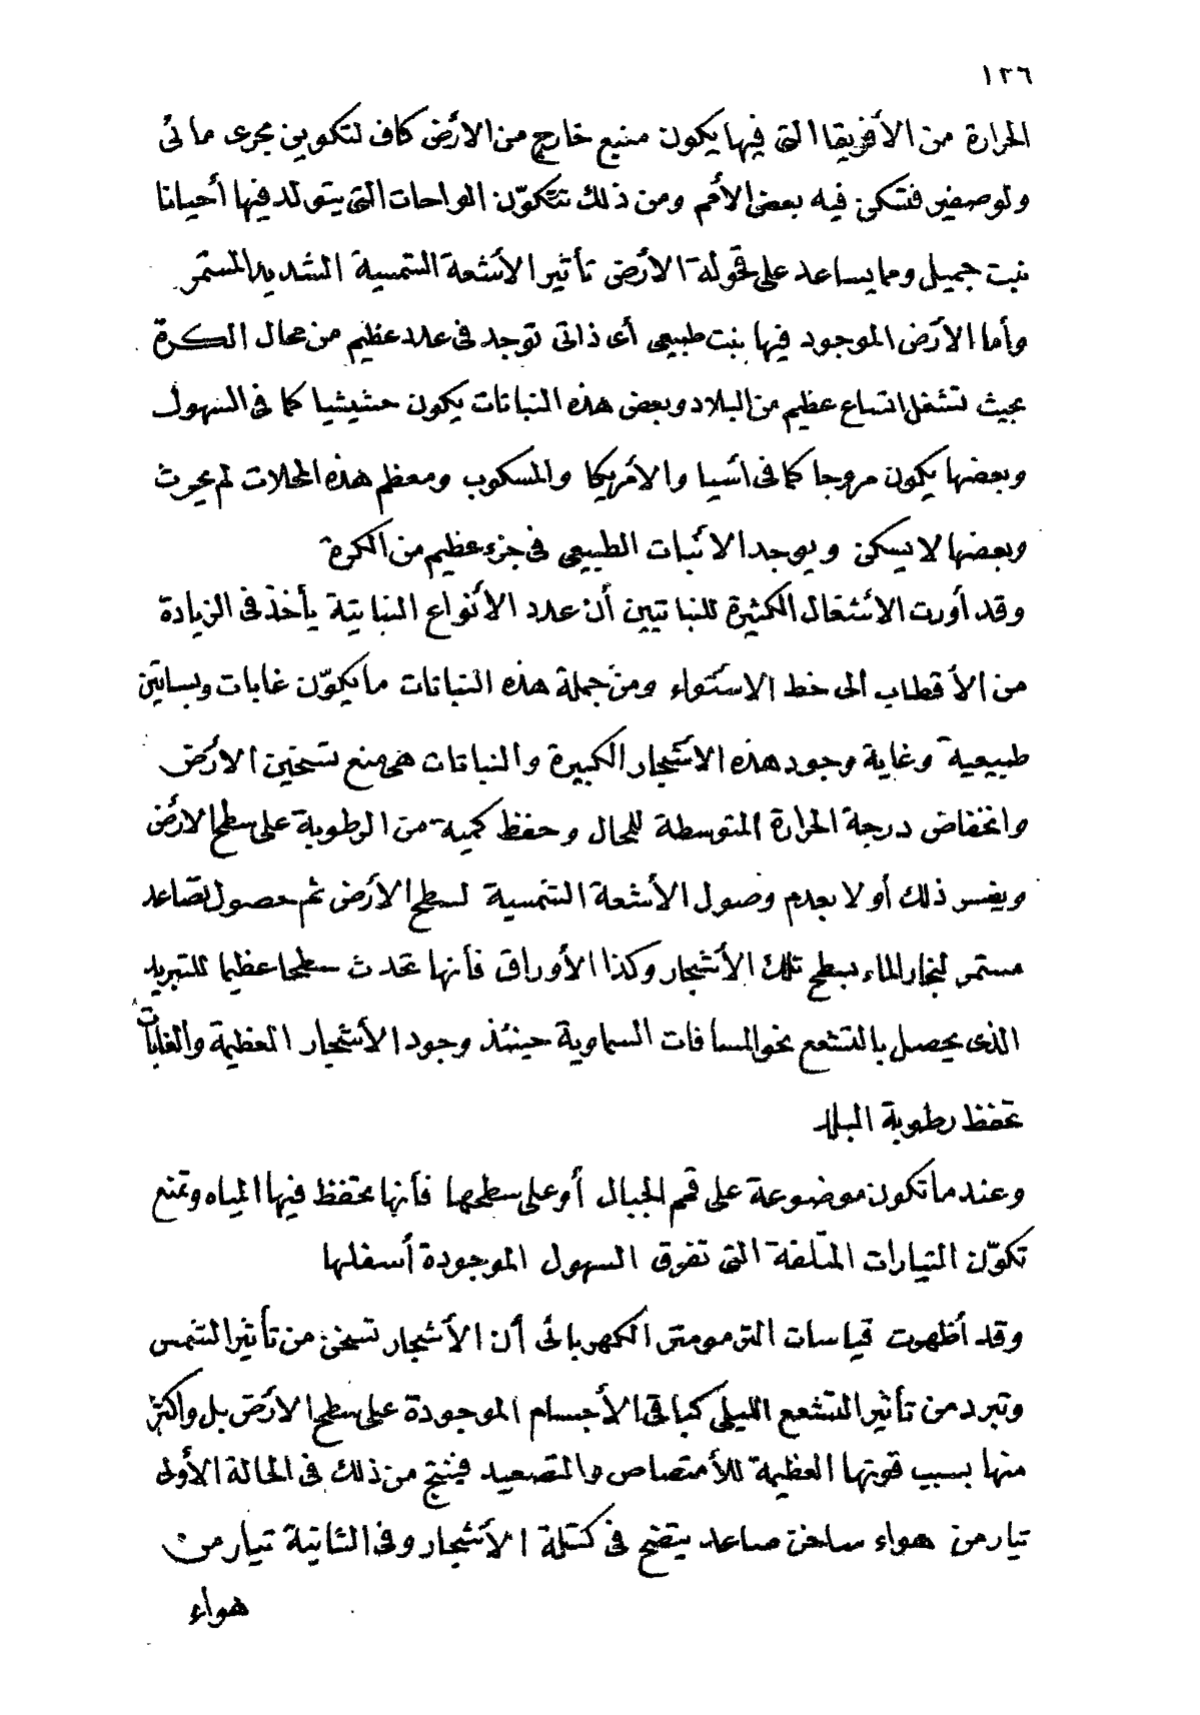 ١٣٦
الحرارة من الأفريقا التى فيها يكون منبع خارج من الارض كاف لتكوين مجرى مائى
ولوصغير فتسكن فيه بعض الأمم ومن ذلك تتكوّن الواحات التى يتولد فيها أحيانا
نبت جميل ومما يساعد على قحولة الارض تأثير الأشعة الشمسية الشديد المستمر
وأما الارض الموجود فيها نبت طبيعى أى ذاتى توجد فى عدد عظيم من محال الكرة
بحيث تشغل اتساع عظيم من البلاد وبعض هذه النباتات يكون حشيشيا كما فى السهول
وبعضها يكون مروجا كما فى اسيا والأمريكا والمسكوب ومعظم هذه المحلات لم يحرث
وبعضها لا يسكن ويوجد الانبات الطبيعى فى جزء عظيم من الكرة
وقد أورت الاشغال الكثيرة للنباتيين أن عدد الأنواع النباتية يأخذ فى الزيادة
من الأقطاب الى خط الاستواء ومن جملة هذه النباتات ما يكوّن غابات وبساتين
طبيعية وغاية وجود هذه الاشجار الكبيرة والنباتات هى منع تسخين الارض
وانخفاض درجة الحرارة المتوسطة للمحال وحفظ كمية من الرطوبة على سطح الارض
ويفسر ذلك أولا بعدم وصول الأشعة الشمسية لسطح الأرض ثم حصول تصاعد
مستمر لبخار الماء بسطح تلك الأشجار وكذا الأوراق فأنها تحدث سطحا عظيما للتبريد
الذى يحصل بالتشعع نحو المسافات السماوية حينئذ وجود الأشجار العظيمة والغابات
تحفظ رطوبة البلد
وعندما تكون موضوعة على قمم الجبال أو على سطحها فأنها تحفظ فيها المياه وتمنع
تكوّن التيارات المتلفة التى تفرق السهول الموجودة أسفلها
وقد أظهرت قياسات الترمومتر الكهربائى أن الأشجار تسخن من تأثير الشمس
وتبرد من تأثير التشعع الليلى كباقى الأجسام الموجودة على سطح الارض بل واكثر
منها بسبب قوتها العظيمة للأمتصاص والتصعيد فينتج من ذلك فى الحالة الأولى
تيار من هواء ساخن صاعد يتضح فى كتلة الأشجار وفى الثانية تيار من
هواء